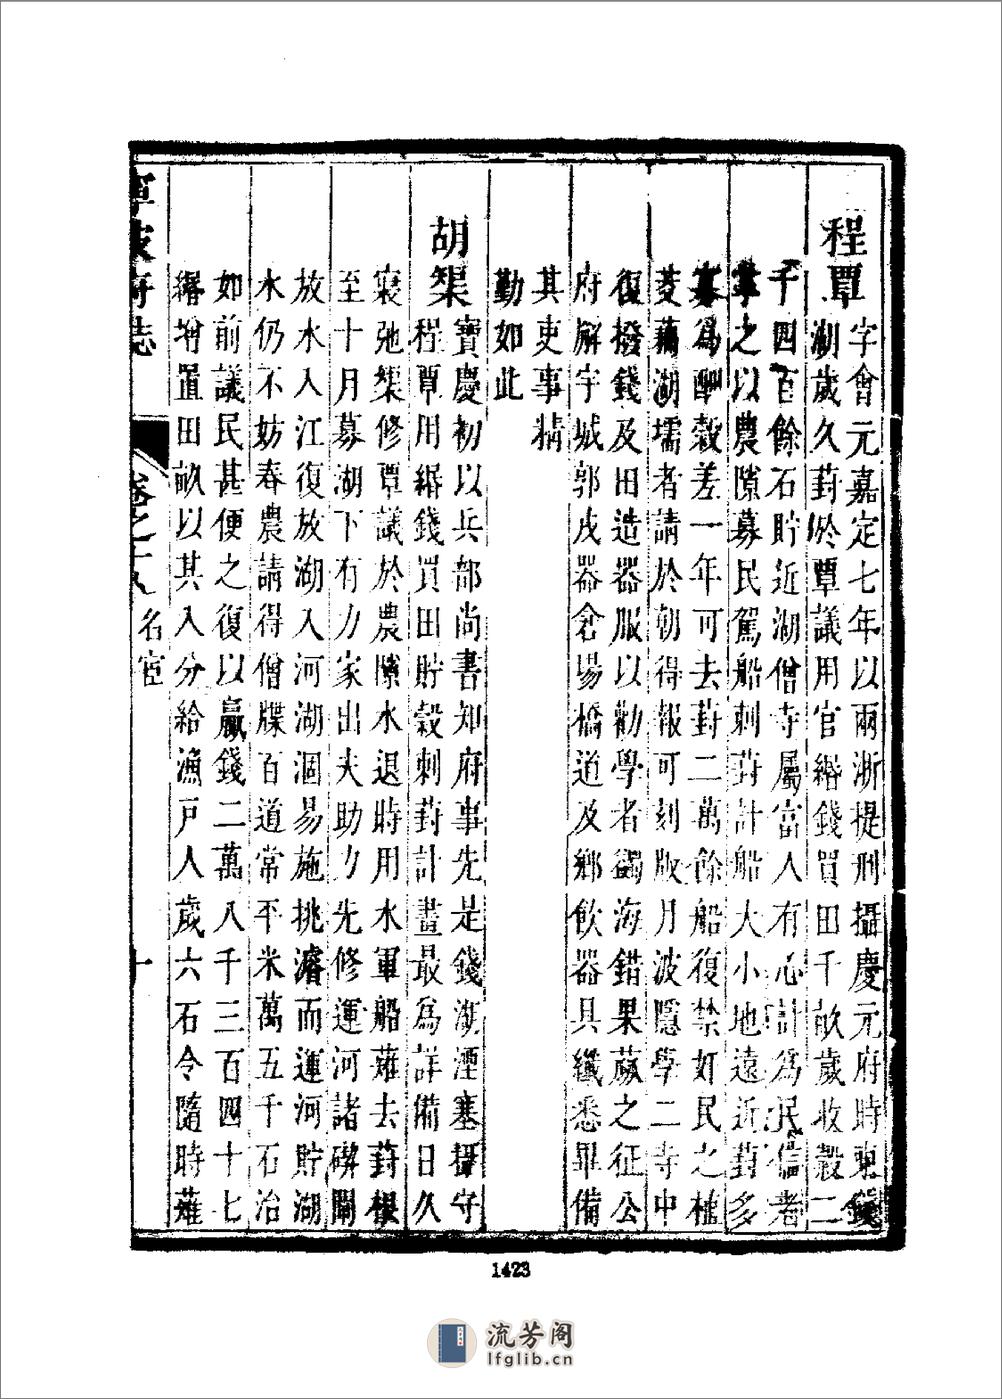 程覃
字會元嘉定七年以兩浙提刑攝慶元府時東錢
湖歲久葑於覃議用官緡錢買田千畝歲收穀二
千四百餘石貯近湖僧寺屬富人有心計為民信者
掌之以農隙募民駕船剌葑計船大小地遠近葑多
寡為酬穀差一年可去葑二萬餘船復禁奸民之植
菱藕湖壖者請於朝得報可刻版月波隱學二寺中
復撥錢及田造器服以勸學者蠲海錯果蓏之征公
府廨宇城郭戍器倉場橋道及鄉飲器具纖悉畢備
其吏事精
勤如此
胡榘
寶慶初以兵部尚書知府事先是錢湖湮塞攝守
程覃用緡錢買田貯穀剌葑計畫最為詳備日久
寖弛榘修覃議於農隙水退時用水軍船薙去葑根
至十月募湖下有力家出夫助力先修運河諸碶閘
放水入江復放湖入河湖涸易施挑濬而運河貯湖
水仍不妨春農請得僧牒百道常平米萬五千石治
如前議民甚便之復以贏錢二萬八千三百四十七
緡增置田畝以其入分給漁戶人歲六石令隨時薙
寧波府志
卷之十八
名宦
十
1423
流芳阁
lfglib.cn